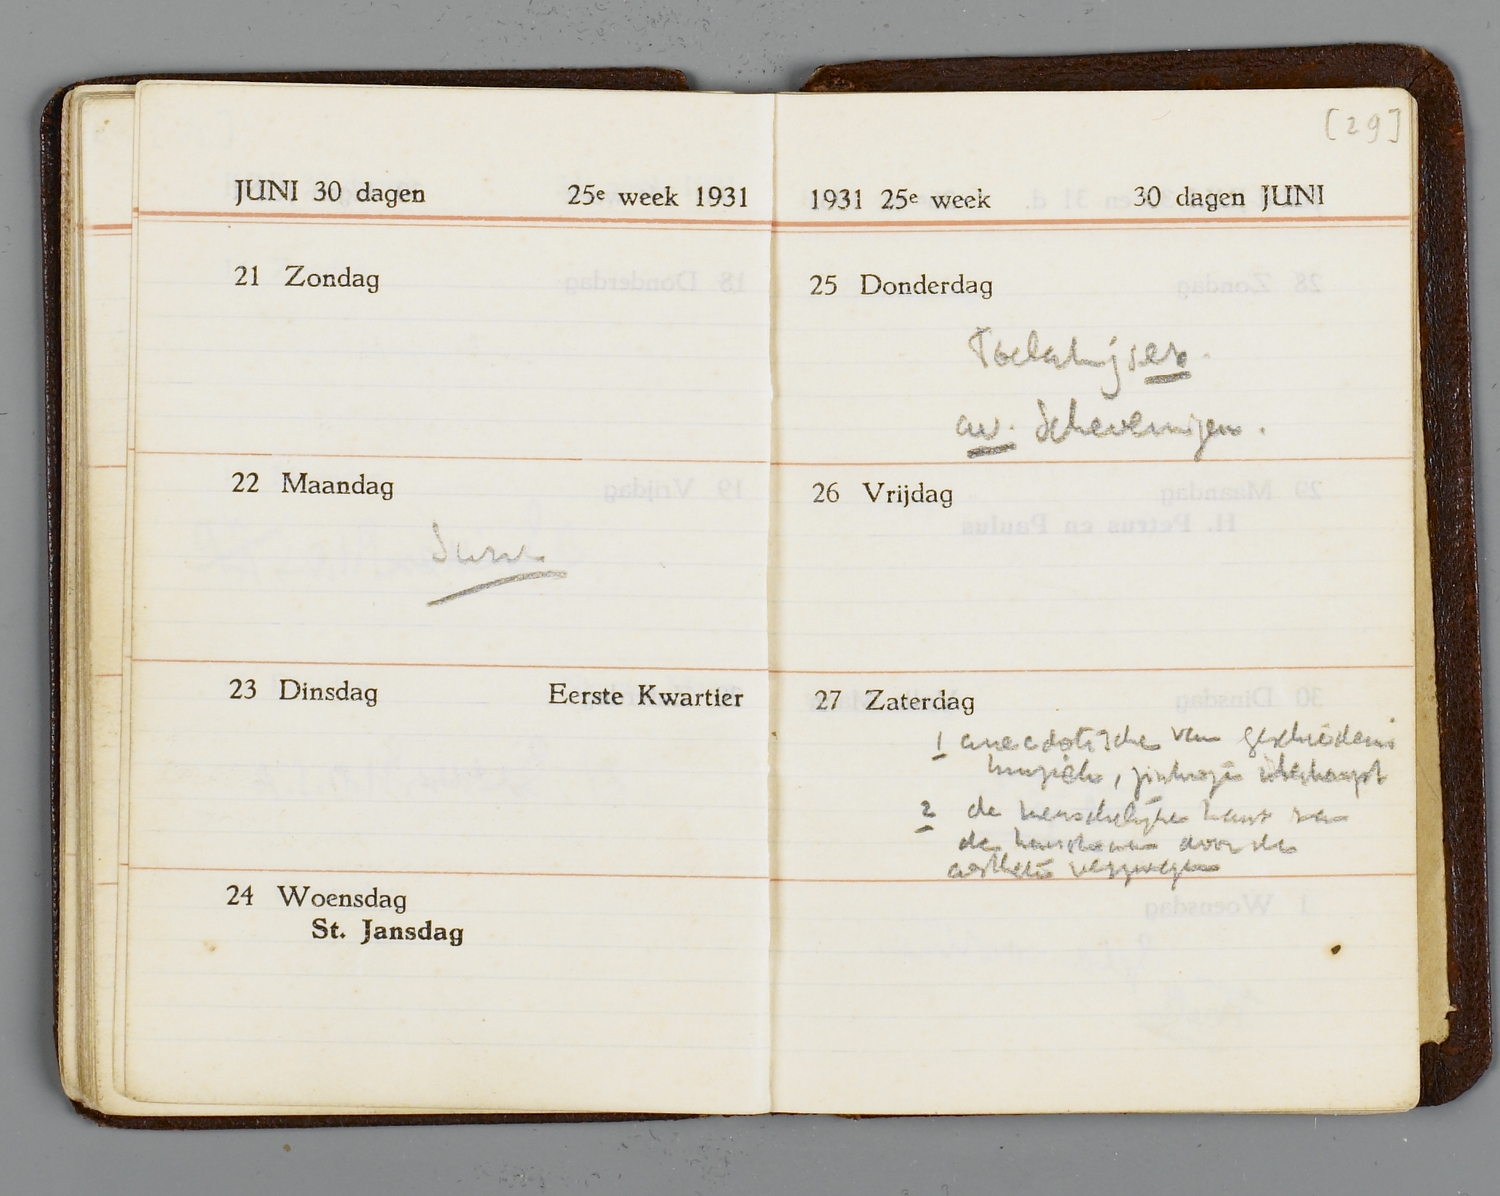 [29]
JUNI 30 dagen 25e week 1931
21 Zondag
22 Maandag
23 Dinsdag Eerste Kwartier
24 Woensdag
St. Jansdag
1931 25e week 30 dagen JUNI
25 Donderdag
av. Scheveningen.
26 Vrijdag
27 Zaterdag
1 anecdotische van geschiedenis
muziek, überhaupt
2 de menschelijke kant van
de door de